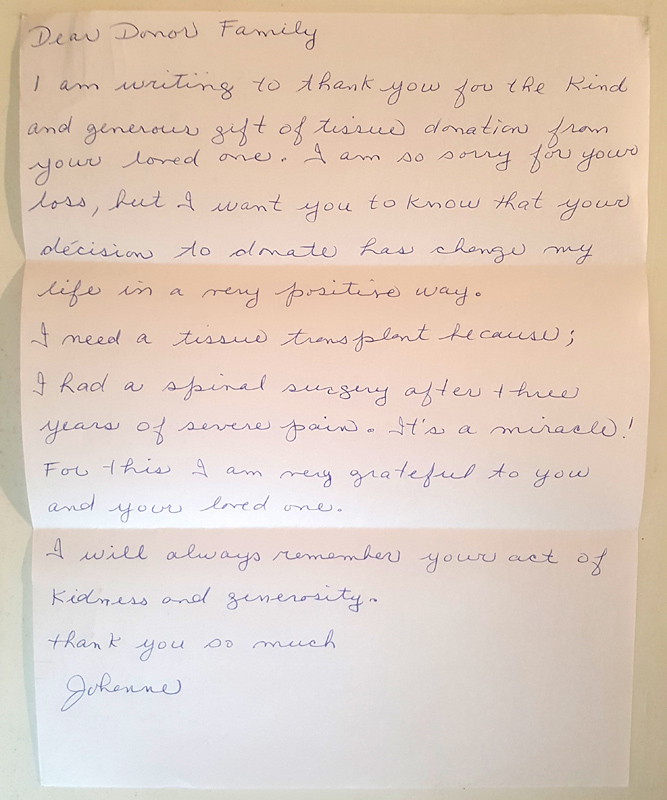 Dear Donor Family
I am writing to thank you for the Kind
and generous gift of tissue donation from
your loved one. I am so sorry for your
loss, but I want you to know that your
décision to donate has change my
life in a very positive way.
I need a tissue transplant because;
I had a spinal surgery after three
years of severe pain. It's a miracle!
For this I am very grateful to you
and your loved one.
I will always remember your act of
Kidness and generosity.
thank you so much
Johanne